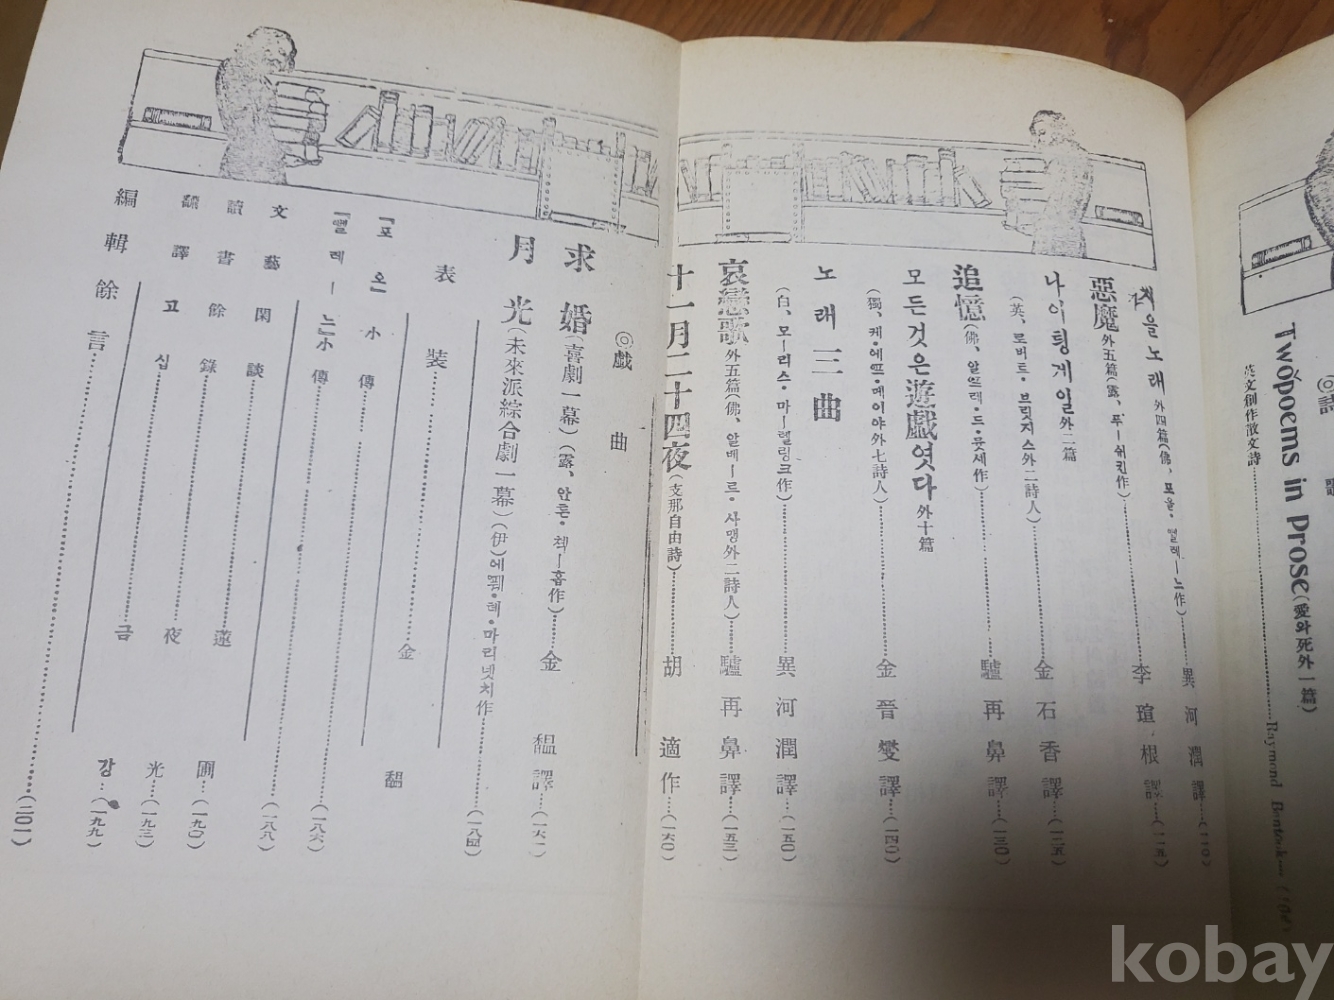 ◎詩
Two poems in Prose(愛와死外一篇)
英文創作散文詩
Raymond
가을노래外四篇(佛、포올·뻴레ー느作)……異河潤譯……(一一〇)
惡魔外五篇(露、푸ー쉬킨作)……李瑄根譯……(一一五)
나이팅게일外二篇
(英、로버르·브릿지스外二詩人)……金石香譯……(一二五)
追憶(佛、알프레·드·뮷세作)……驢再鼻譯……(一三〇)
모든것은遊戱엿다外十篇
(獨、케·에프·메이야外七詩人)……金晉燮譯……(一四〇)
노래三曲
(白、모ー리스·마ー텔링크作)……異河潤譯……(一五〇)
哀戀歌外五篇(佛、알베ー르·사맹外二詩人)……驢再鼻譯……(一五三)
十一月二十四夜(支那自由詩)……胡適作……(一六〇)
◎戱曲
求婚(喜劇一幕)(露、안톤·첵ー홉作)……金馧譯……(一六一)
月光(未來派綜合劇一幕)(伊)에쯰·테·마리넷치作……(一八四)
表裝……金馧
「포오」小傳
「뻴레ー느」小傳……(一八六)
文藝閑談……(一八八)
讀書餘錄……蓮圃……(一九〇)
飜譯고십……夜光……(一九三)
금강……(一九九)
編輯餘言……(二〇一)
kobay